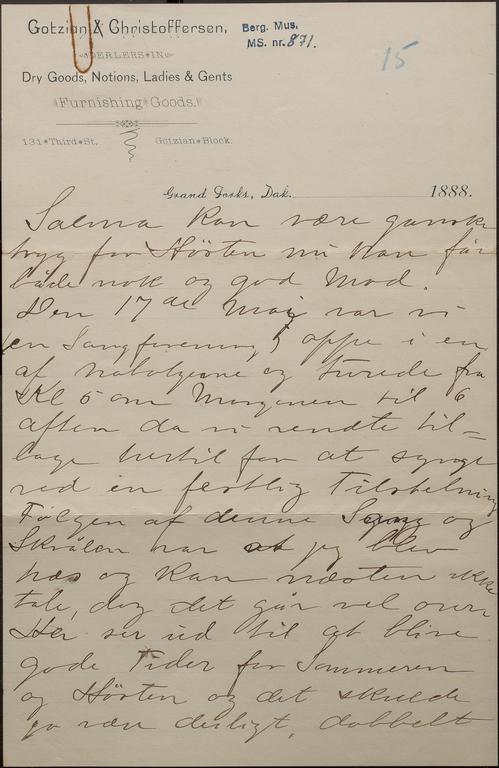 Gotzian & Christoffersen,
DEALERS IN
Dry Goods, Notions, Ladies & Gents
Furnishing Goods.
131 Third St. Gotzian Block.
Berg. Mus.
MS. nr. 871.
15
Grand Forks, Dak. 1888.
Salma kan være ganske
tryg for Hösten nu han får
både nok og god Mad.
Den 17de Maj var vi
en Sangforening oppe i en
af nabobyerne og turede fra
Kl 5 om Morgenen til 6
aften da vi vendte til-
bage hertil for at synge
ved en festlig Tilstelning
Fölgen af denne Sang og
Skrålen var at jeg blev
hæs og kan næsten ikke
tale, dog det går vel over.
Her ser ud til at blive
gode Tider for Sommeren
og Hösten og det skulde
jo være deiligt, dobbelt